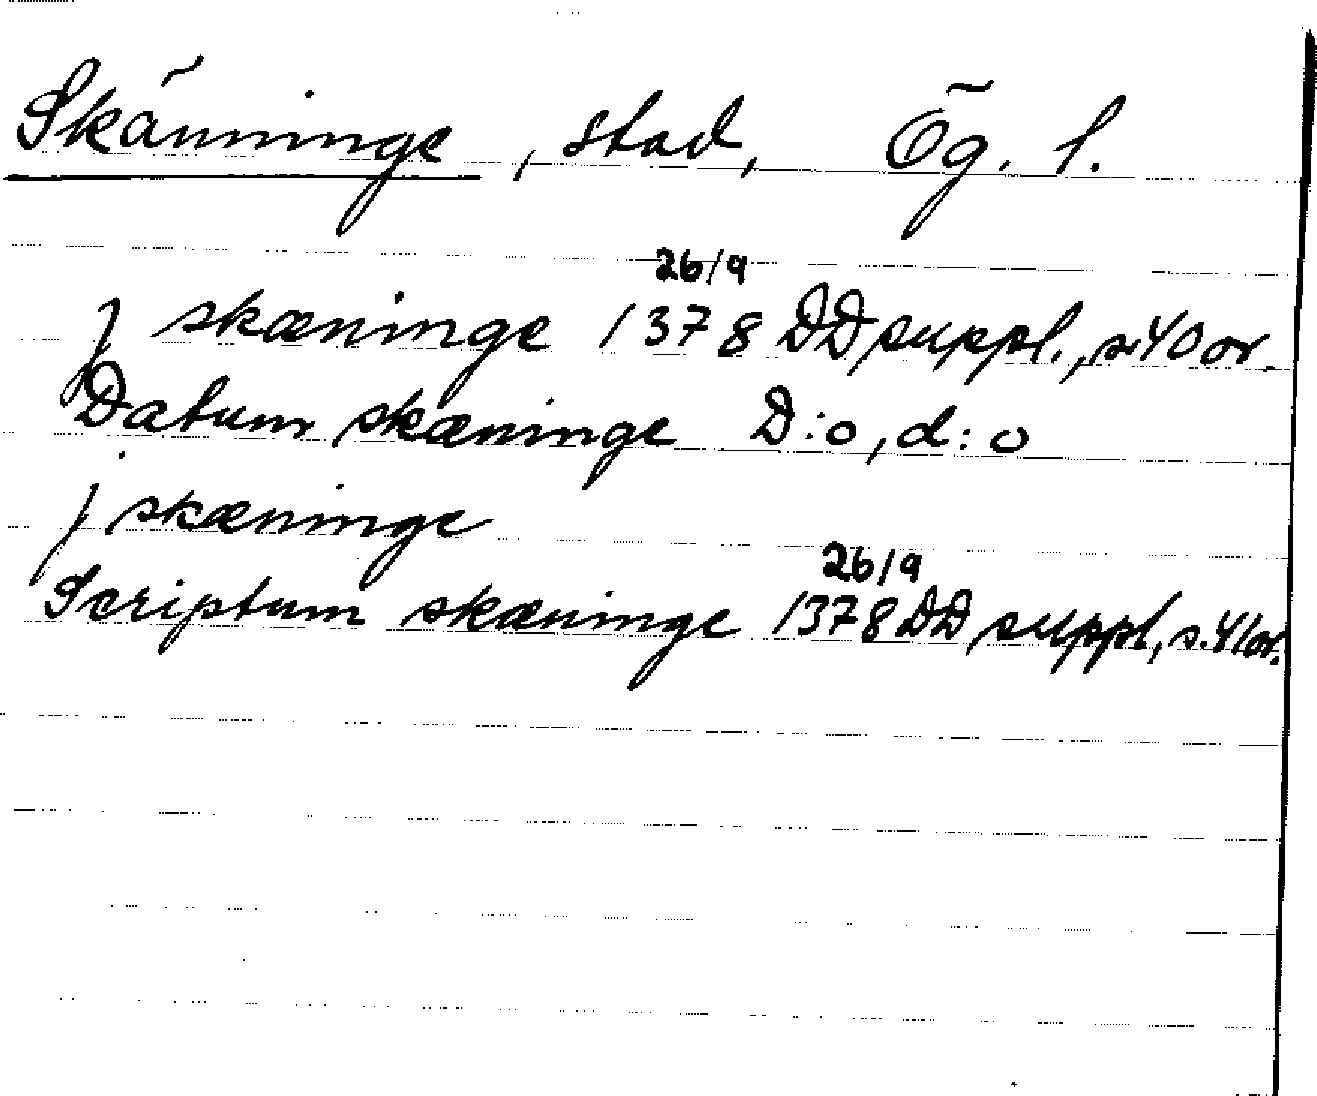 Skänninge, stad, Ög. l.
26/9
j skæninge 1378 DD suppl., s. 40 or.
Datum skæninge D:o, d:o
j skæninge
26/9
Scriptum skæninge 1378 DD suppl, s. 41 or.